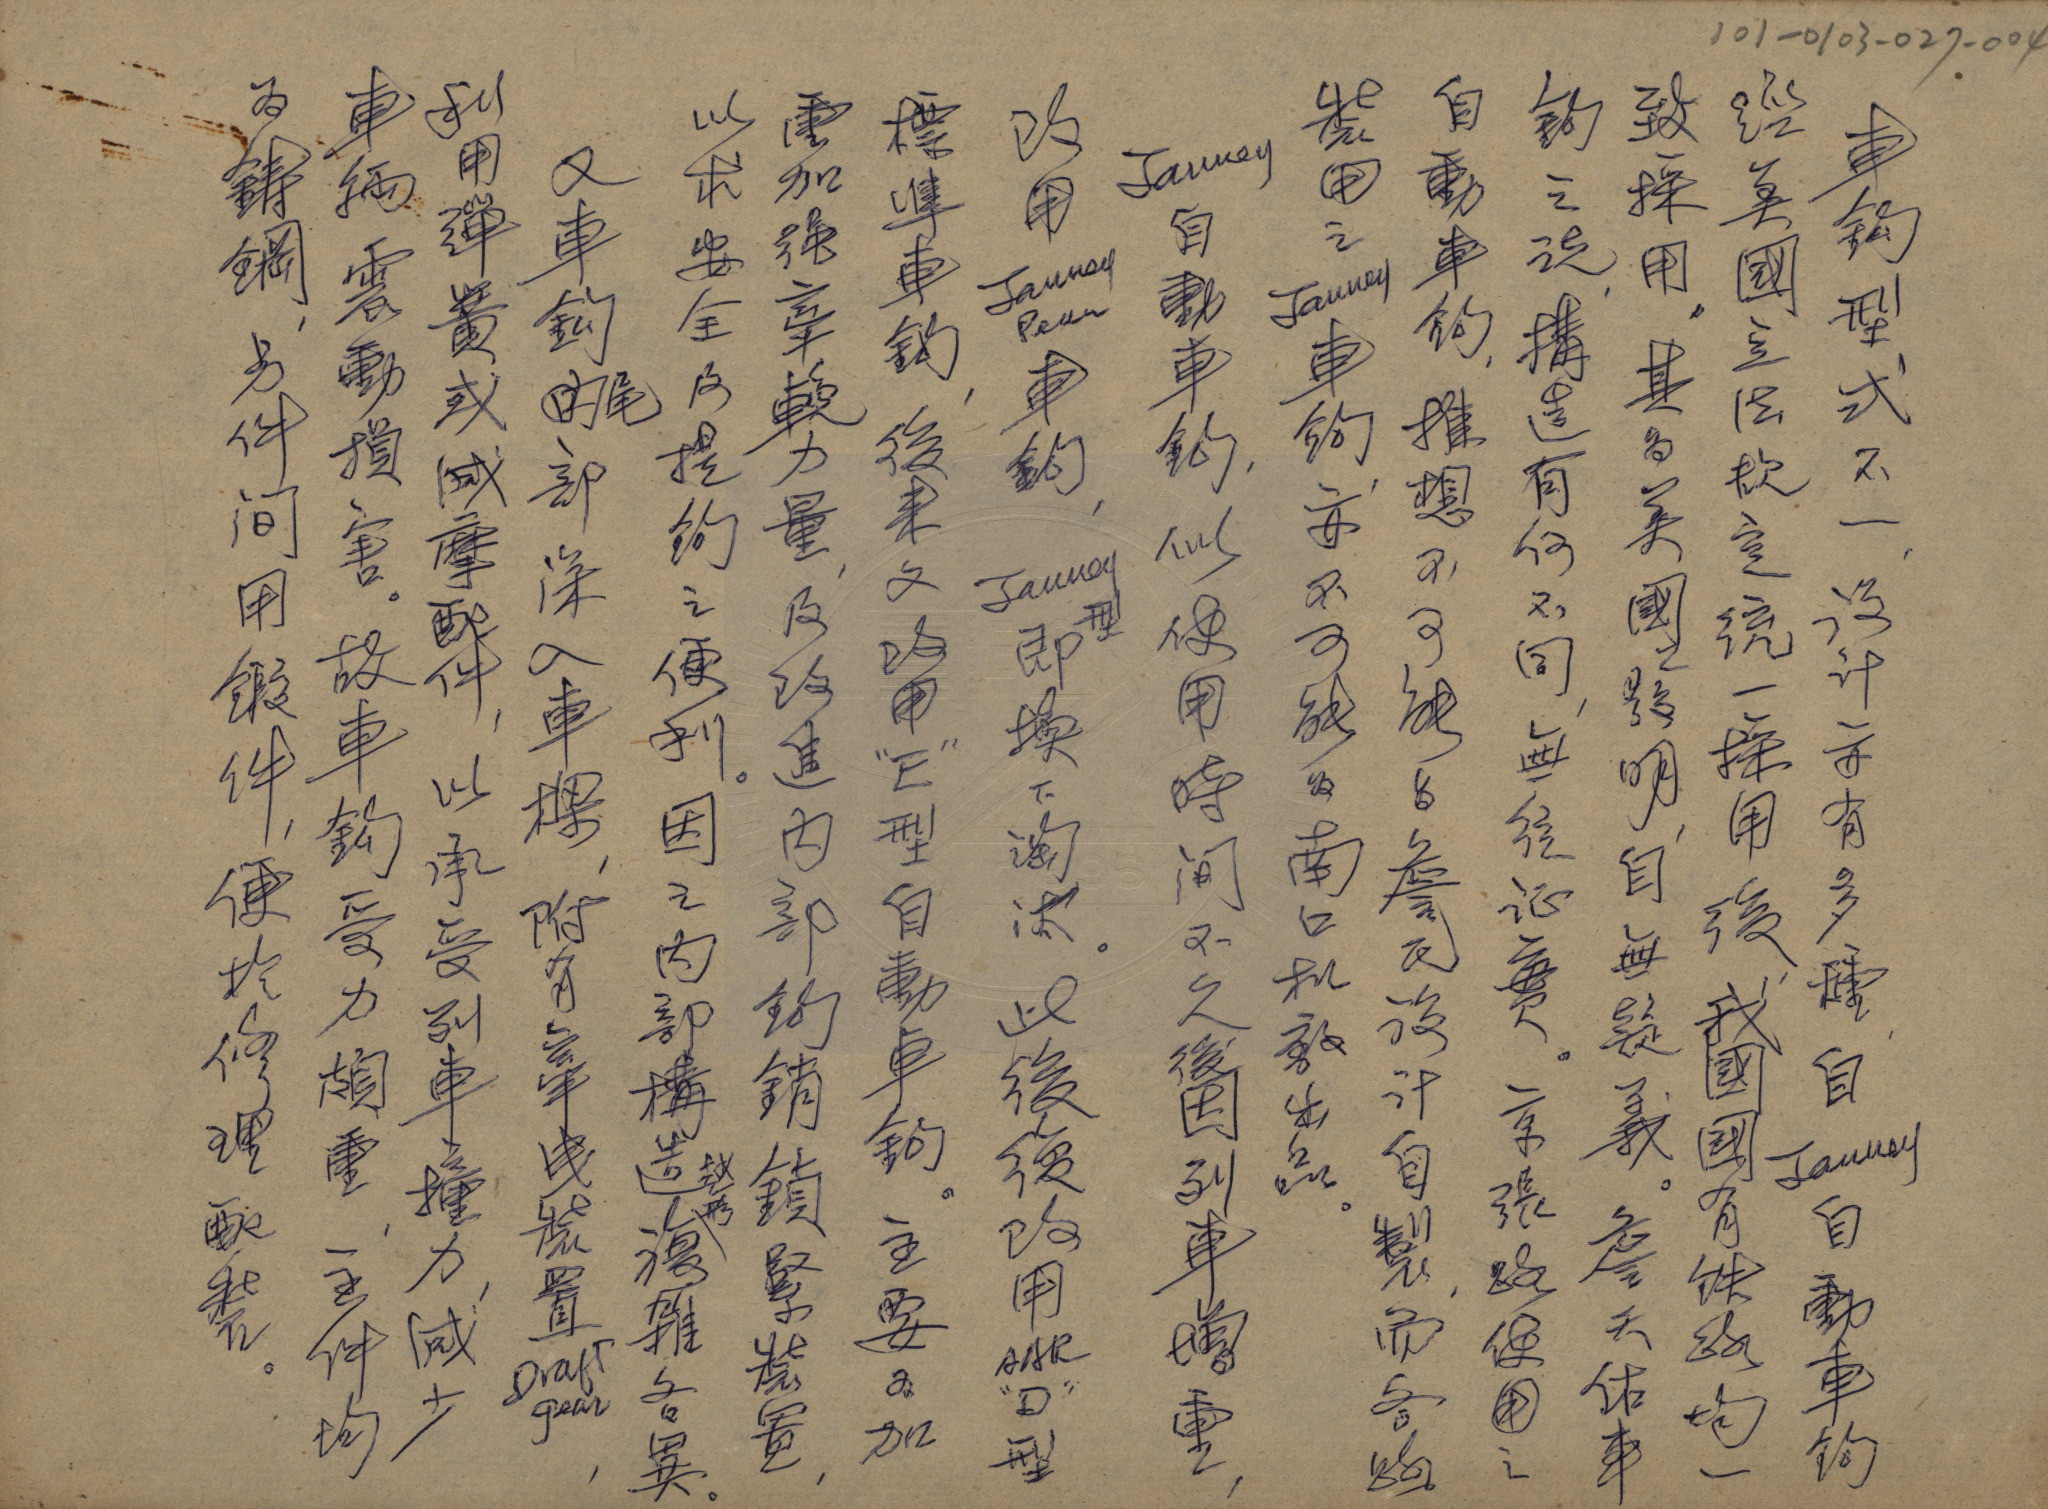 101-0103-027-004
車鈎型式不一，設計亦有多種，自Janney自動車鈎
經美國立法規定統一採用後，我國國有鉄路均一
致採用。其為美國之發明，自無疑義。詹天佑車
鈎之說，構造有何不同，無從证實。京張路使用之
自動車鈎，推想不可能由詹氏設計自製，而各路
裝用之Janney車鈎，亦不可能為南口机廠出品。
Janney自動車鈎，似使用時间不久後因列車增重，
改用Janney Penn車鈎，Janney型即換下淘汰。此後復改用AAR“D”型
標準車鈎，後来又改用“E”型自動車鈎。主要為加
重加强牽輓力量，及改進内部鈎銷鎖緊裝置，
以求安全及提鈎之便利。因之内部構造越形複雜各異。
又車鈎尾部深入車樑，附有牽曳裝置Draft gear，
利用彈簧或減摩配件，以承受列車撞力，減少
車輛震動損害。故車鈎受力頗重，主件均
為鑄鋼，另件间用鍛件，便於修理配裝。